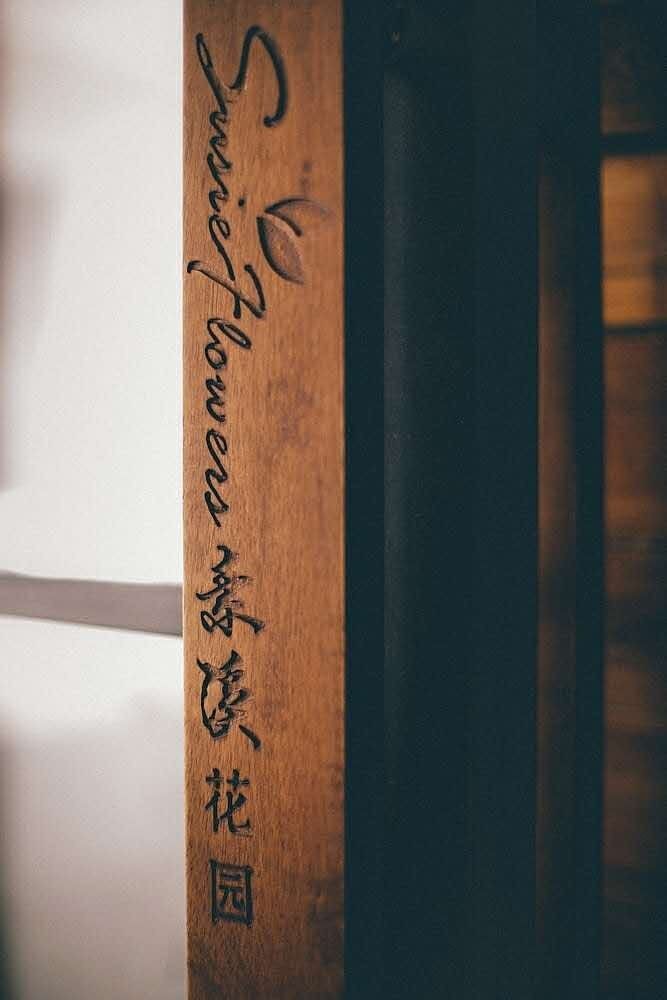 Susie Flowers
花园